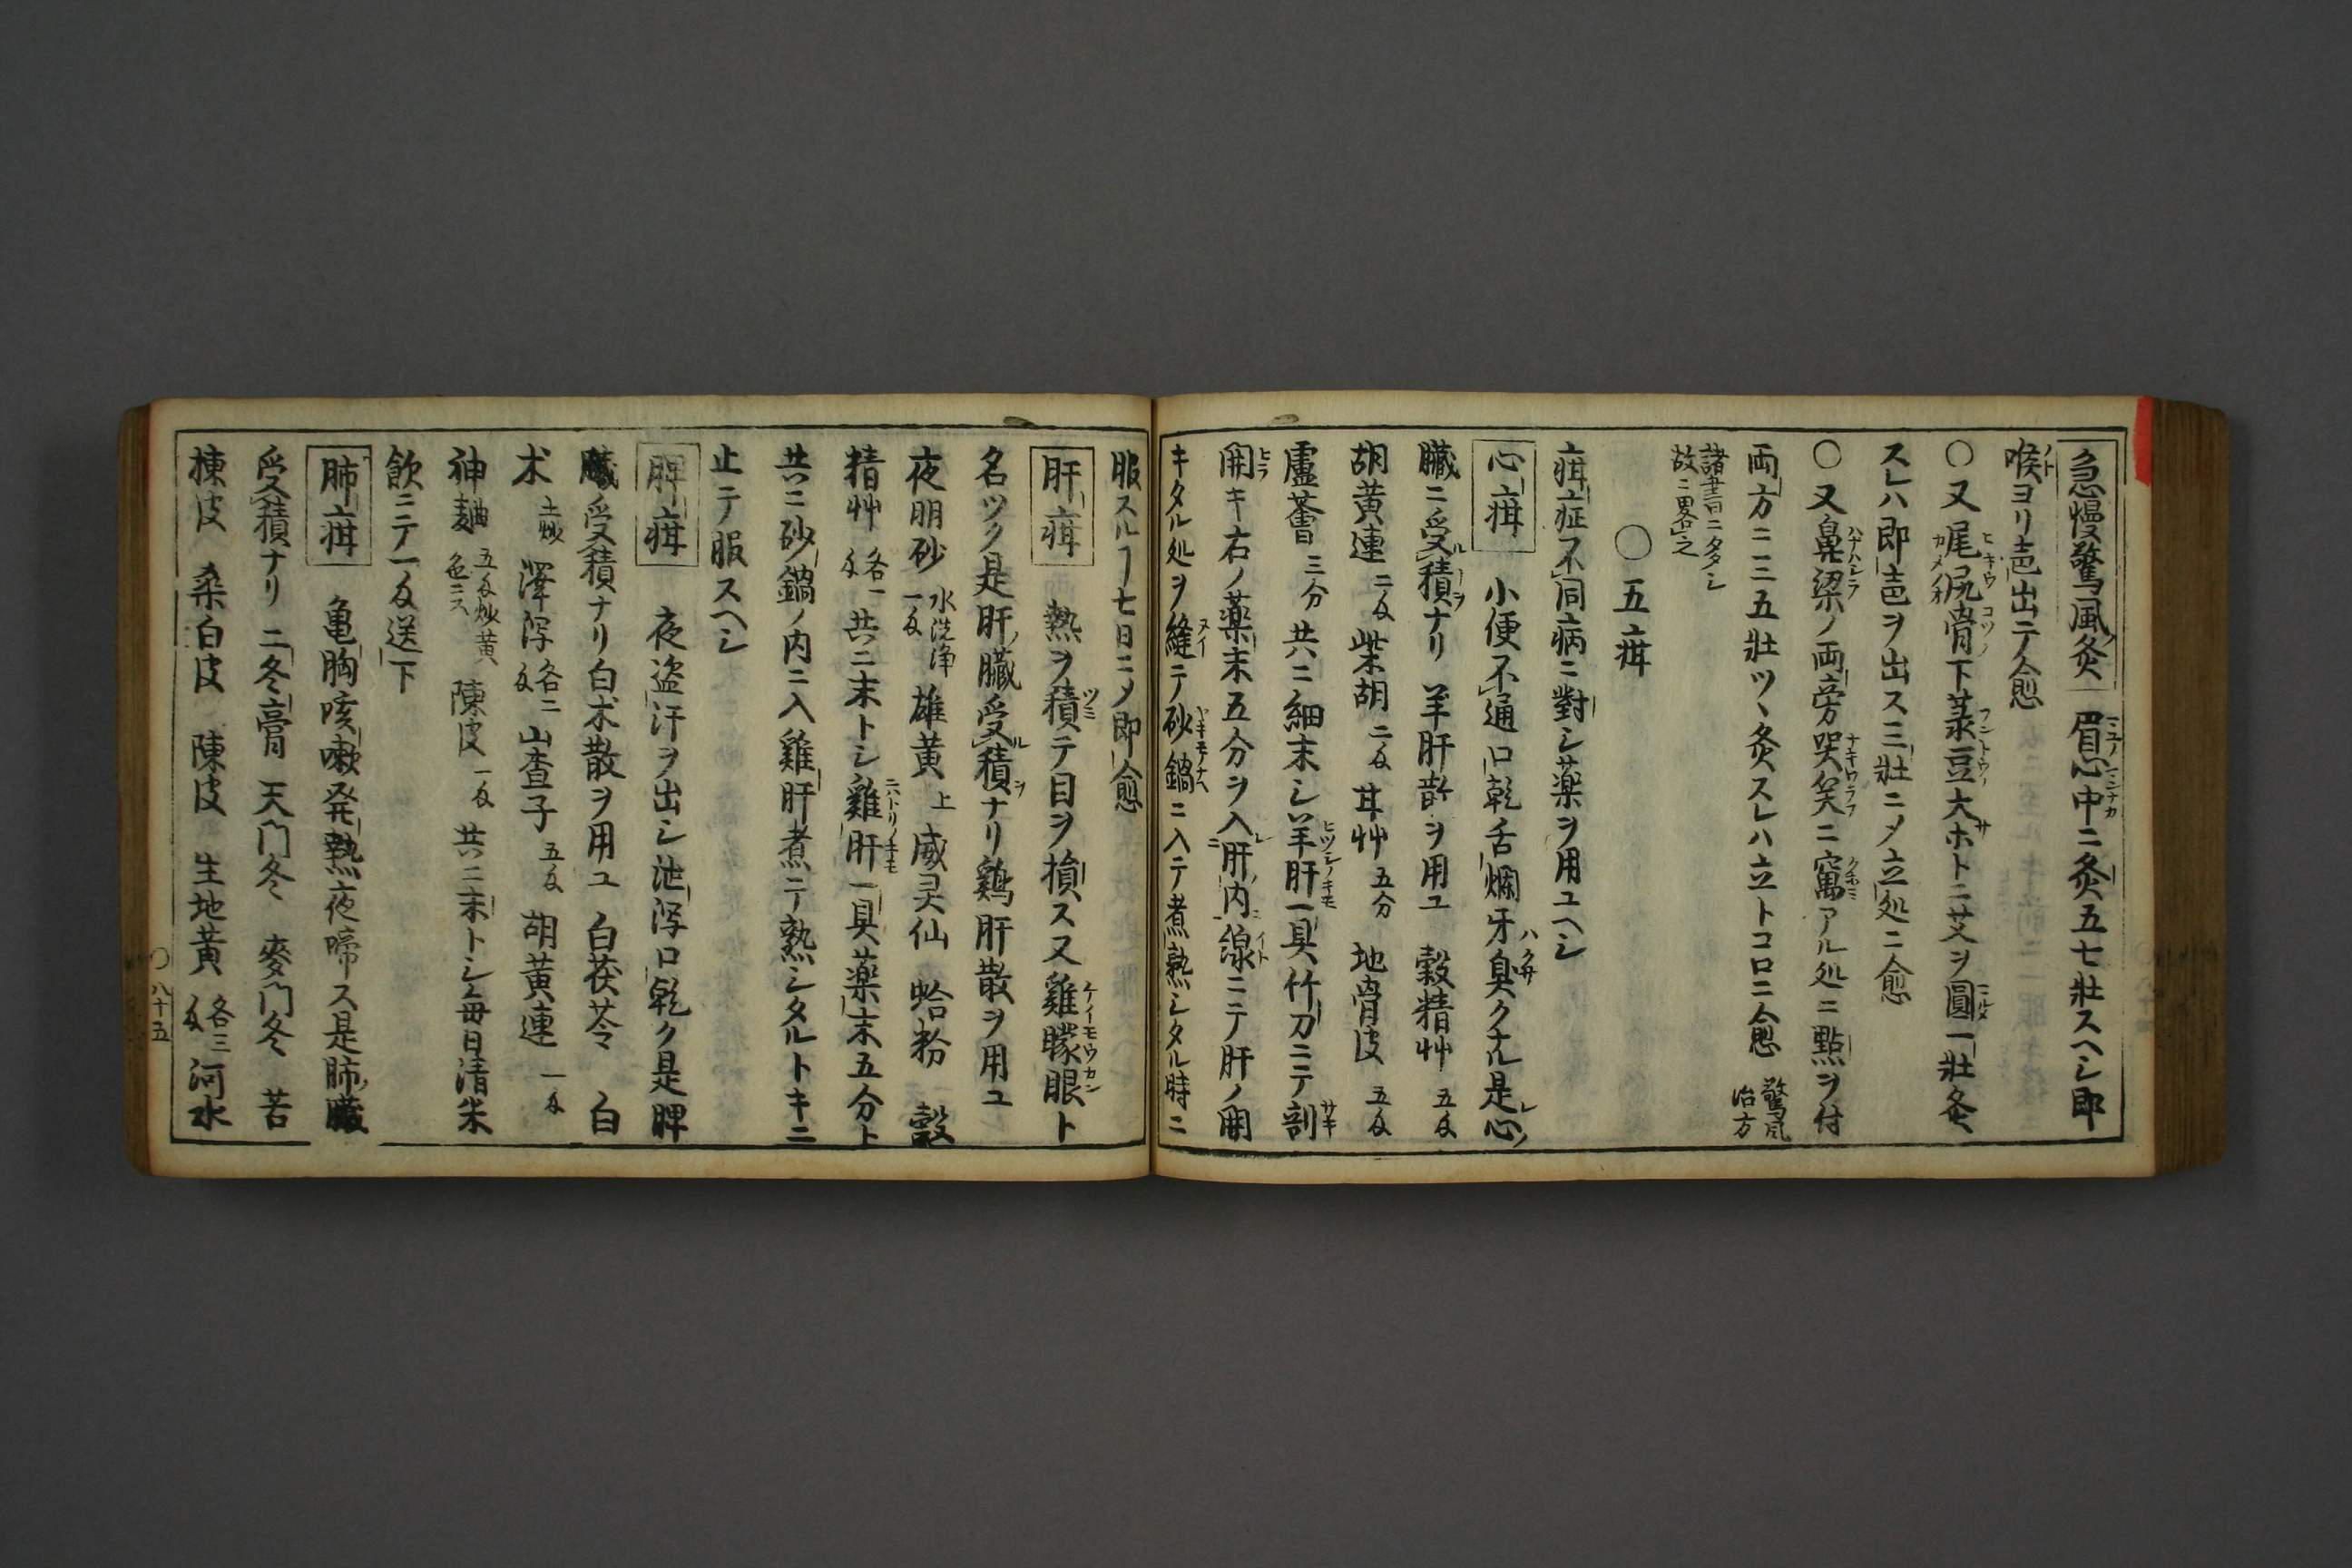 急慢驚風灸 眉心中ニ灸五七壮スヘシ即
喉ヨリ声出テ愈
〇又尾尻骨下菉豆大ホトニ艾ヲ圓一壮灸
スレハ即声ヲ出ス三壮ニメ立処ニ愈
〇又鼻梁ノ両旁哭笑ニ窩アル処ニ點ヲ付
両方ニ三五壮ツヽ灸スレハ立トコロニ愈 驚風治方
諸書ニタタシ故ニ畧之
〇五疳
疳症不同病ニ對シ薬ヲ用ユヘシ
心疳 小便不通口乾舌爛牙臭クナル是心
臓ニ受積ナリ 羊肝散ヲ用ユ 穀精艸 五匁
胡黄連 二匁 柴胡 二匁 甘艸 五分 地骨皮 五匁
盧薈 三分 共ニ細末シ羊肝一具竹刀ニテ剖
開キ右ノ薬末五分ヲ入肝内線ニテ肝ノ開
キタル処ヲ縫テ砂鍋ニ入テ煮熟シタル時ニ
服スルヿ七日ニメ即愈
肝疳 熱ヲ積テ目ヲ損ス又雞朦眼ト
名ツク是肝臓受積ナリ鶏肝散ヲ用ユ
夜明砂 水洗浄一匁 雄黄 上 威灵仙 蛤粉 穀
精艸 各一匁 共ニ末トシ雞肝一具薬末五分ト
共ニ砂鍋ノ内ニ入雞肝煮テ熟シタルトキニ
止テ服スヘシ
脾疳 夜盗汗ヲ出シ泄瀉口乾ク是脾
臓受積ナリ白术散ヲ用ユ 白茯苓 白
术 土炒 澤瀉 各二匁 山査子 五匁 胡黄連 一匁
神麯 五匁炒黄色ニス 陳皮 一匁 共ニ末トシ毎日清米
飲ニテ一匁送下
肺疳 亀胸咳嗽発熱夜啼ス是肺臓
受積ナリ 二冬膏 天門冬 麥門冬 苦
楝皮 桒白皮 陳皮 生地黄 各三匁 河水
〇八十五